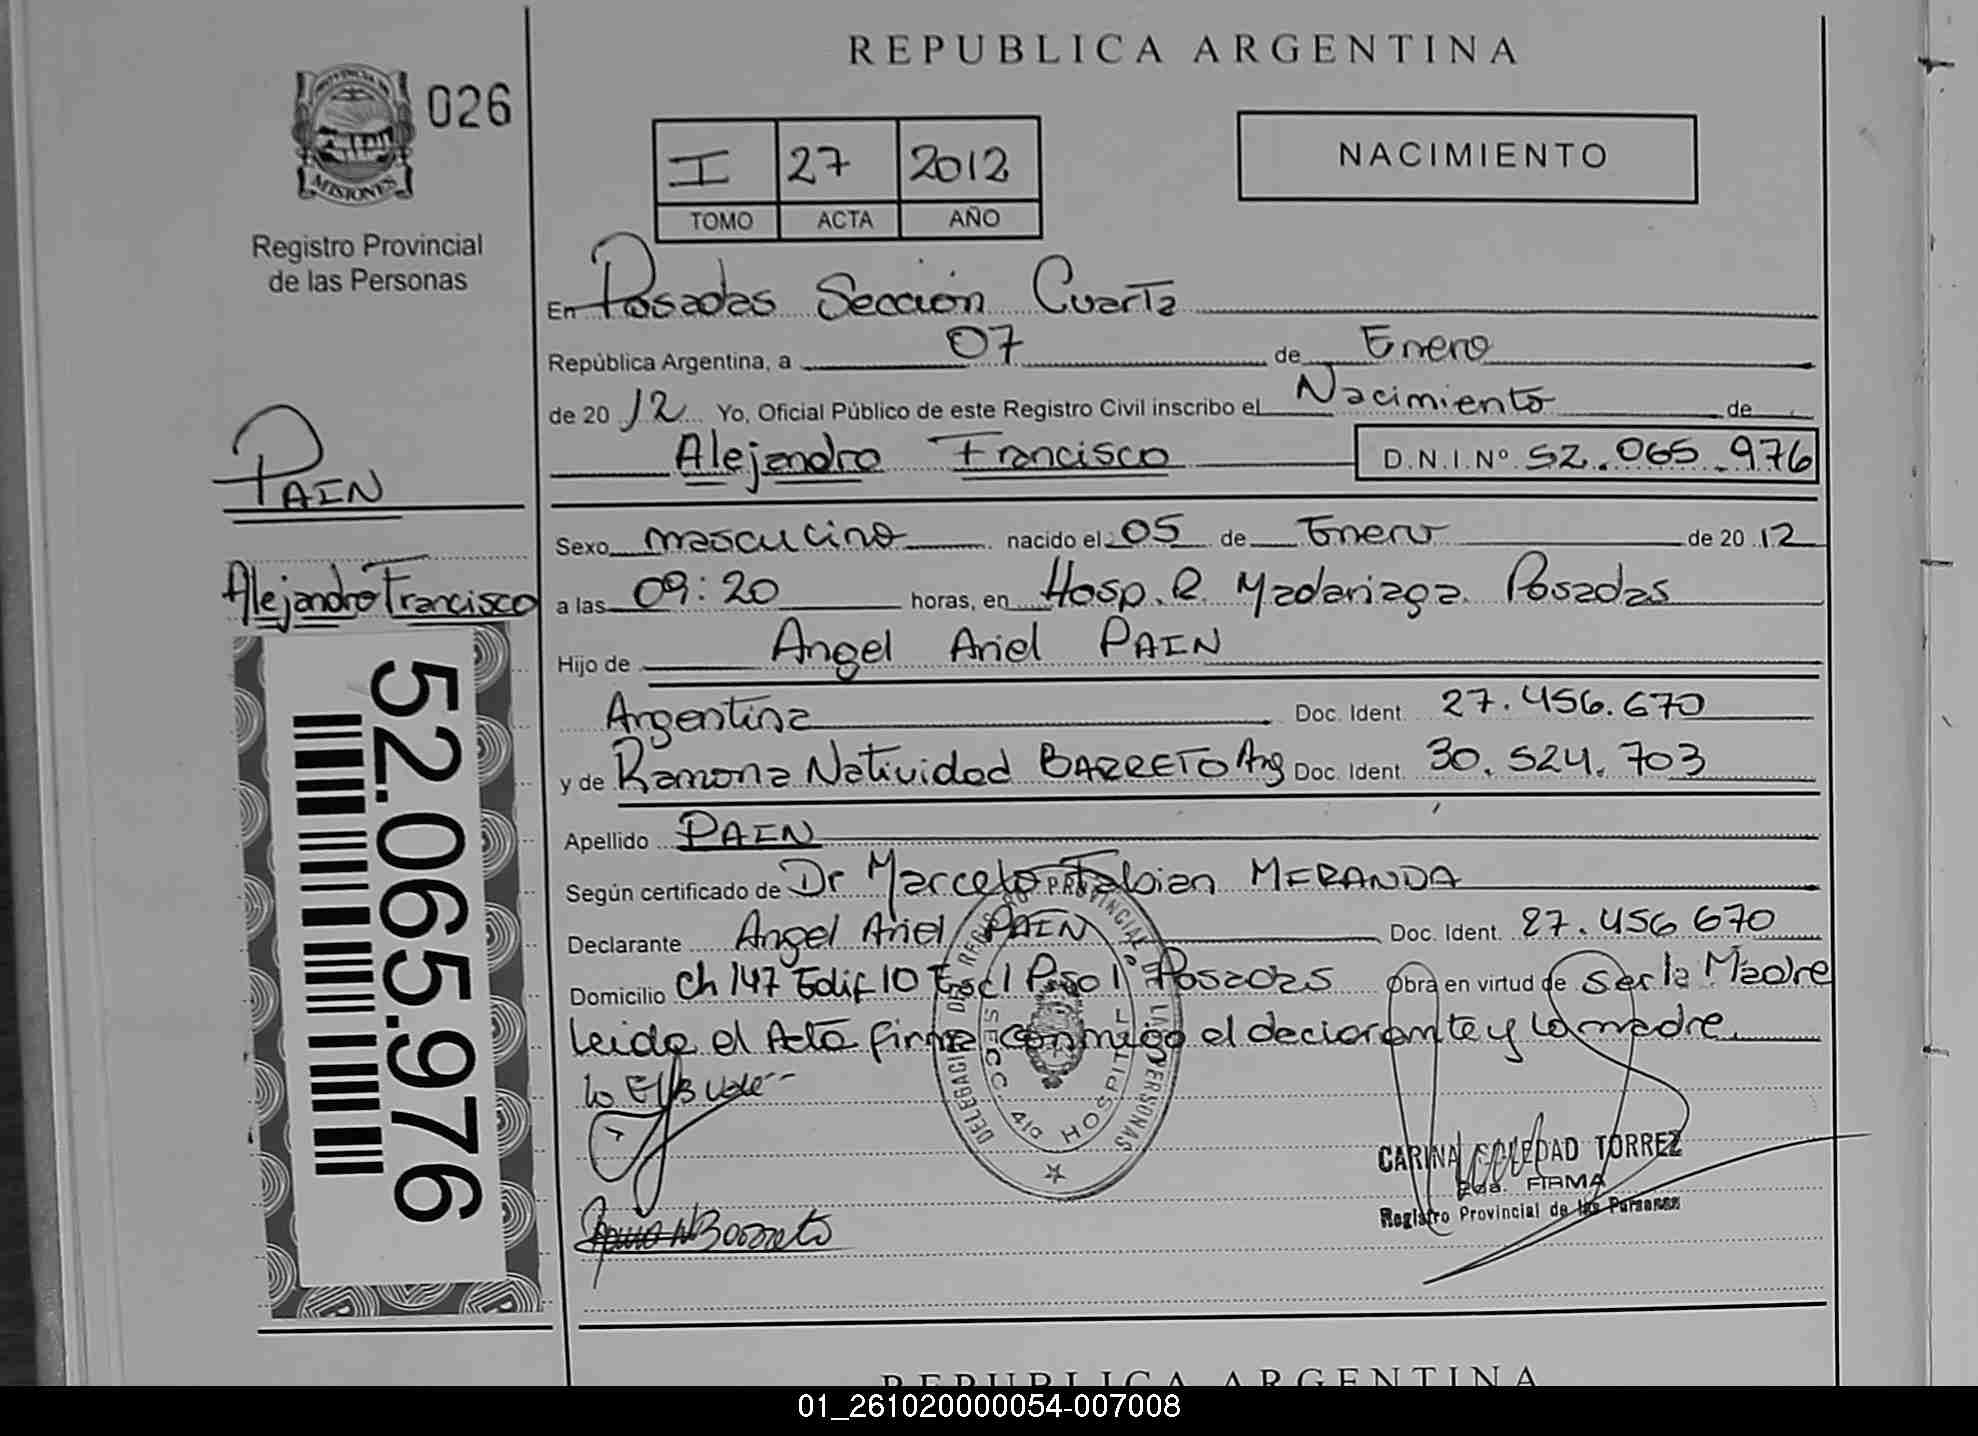 REPUBLICA ARGENTINA
PROVINCIA
MISIONES
026
Registro Provincial
de las Personas
I 27 2012
TOMO ACTA AÑO
NACIMIENTO
En Posadas Sección Cuarta
República Argentina, a 07 de Enero
de 2012 Yo, Oficial Público de este Registro Civil inscribo el Nacimiento de
Alejandro Francisco D.N.I.Nº 52.065.976
PAIN
Alejandro Francisco
Sexo masculino nacido el 05 de Enero de 2012
a las 09:20 horas, en Hosp. R. Madariaga Posadas
Hijo de Angel Ariel PAIN
Argentina Doc. Ident. 27.456.670
y de Ramona Natividad BARRETO Arg Doc. Ident. 30.524.703
Apellido PAIN
Según certificado de Dr Marcelo Fabian MERANDA
Declarante Angel Ariel PAIN Doc. Ident. 27.456 670
Domicilio Ch 147 Edif 10 Esc 1 Piso 1º Posadas Obra en virtud de Ser la Madre
leida el Acta firma conmigo el declarante y la madre
52.065.976
DELEGACION DEL REGISTRO PROVINCIAL DE LAS PERSONAS
SECC. 4ta HOSPITAL
CARINA SOLEDAD TORREZ
2da. FIRMA
Registro Provincial de las Personas
REPUBLICA ARGENTINA
01_261020000054-007008